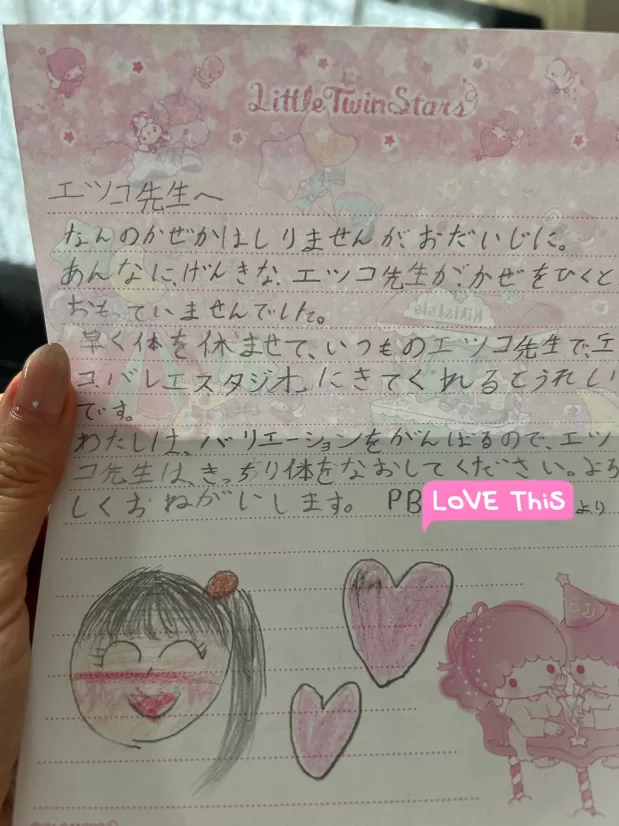 LittleTwinStars
エツコ先生へ
なんのかぜかはしりませんが、おだいじに。
あんなに、げんきな、エツコ先生が、かぜをひくと
おもっていませんでした。
早く体を休ませて、いつものエツコ先生で、エ
コバレエスタジオ、にきてくれるとうれしい
です。
わたしは、バリエーションをがんばるので、エツ
コ先生は、きっちり体をなおしてください。よろ
しくおねがいします。 PB LOVE THIS より